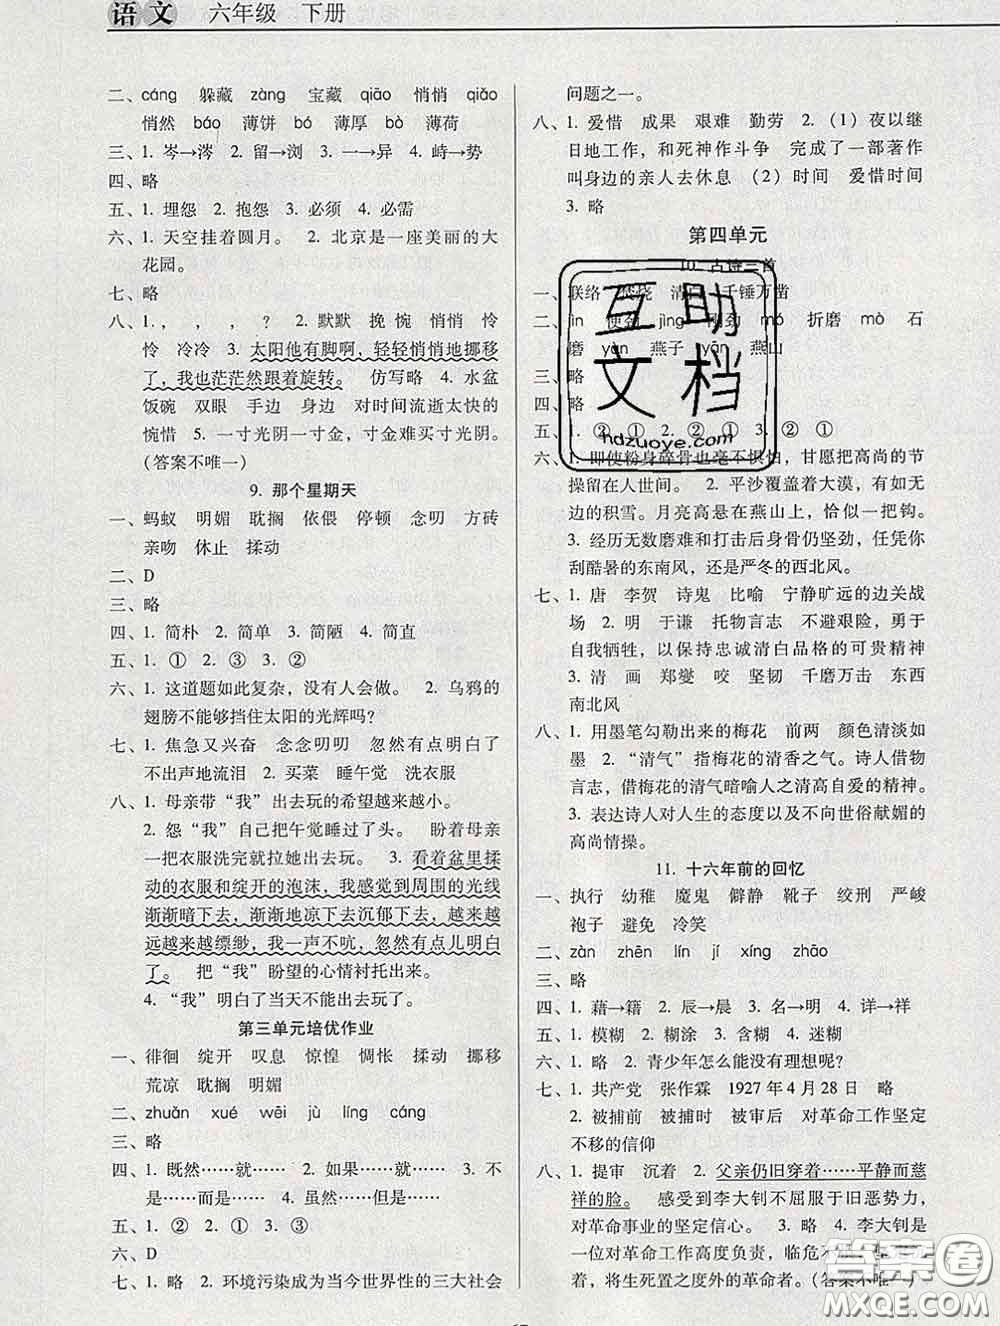 语文 六年级 下册
二、cáng 躲藏 zàng 宝藏 qiāo 悄悄 qiǎo
悄然 báo 薄饼 bó 薄厚 bò 薄荷
三、1. 岑→涔 2. 留→浏 3. 一→异 4. 峙→势
四、略
五、1. 埋怨 2. 抱怨 3. 必须 4. 必需
六、1. 天空挂着圆月。 2. 北京是一座美丽的大
花园。
七、略
八、1. ， ， ， ？ 2. 默默 挽 惋 悄悄 怜
怜 冷冷 3. 太阳他有脚啊，轻轻悄悄地挪移
了，我也茫茫然跟着旋转。 仿写略 4. 水盆
饭碗 双眼 手边 身边 对时间流逝太快的
惋惜 5. 一寸光阴一寸金，寸金难买寸光阴。
（答案不唯一）
9. 那个星期天
一、蚂蚁 明媚 耽搁 依偎 停顿 念叨 方砖
亲吻 休止 揉动
二、D
三、略
四、1. 简朴 2. 简单 3. 简陋 4. 简直
五、1. ① 2. ③ 3. ②
六、1. 这道题如此复杂，没有人会做。 2. 乌鸦的
翅膀不能够挡住太阳的光辉吗？
七、1. 焦急又兴奋 念念叨叨 忽然有点明白了
不出声地流泪 2. 买菜 睡午觉 洗衣服
八、1. 母亲带“我”出去玩的希望越来越小。
2. 怨“我”自己把午觉睡过了头。 盼着母亲
一把衣服洗完就拉她出去玩。 3. 看着盆里揉
动的衣服和绽开的泡沫，我感觉到周围的光线
渐渐暗下去，渐渐地凉下去沉郁下去，越来越
远越来越缥缈，我一声不吭，忽然有点儿明白
了。 把“我”盼望的心情衬托出来。
4. “我”明白了当天不能出去玩了。
第三单元培优作业
一、徘徊 绽开 叹息 惊惶 惆怅 揉动 挪移
荒凉 耽搁 明媚
二、zhuǎn xué wēi jù líng cáng
三、略
四、1. 既然……就…… 2. 如果……就…… 3. 不
是……而是…… 4. 虽然……但是……
五、1. ② 2. ① 3. ③
六、D
七、1. 略 2. 环境污染成为当今世界性的三大社会
问题之一。
八、1. 爱惜 成果 艰难 勤劳 2.（1）夜以继
日地工作，和死神作斗争 完成了一部著作
叫身边的亲人去休息 （2）时间 爱惜时间
3. 略
第四单元
10. 古诗三首
一、联络 焚烧 清白 千锤万凿
二、jìn 使劲 jìng 刚劲 mó 折磨 mò 石
磨 yàn 燕子 yān 燕山
三、略
四、略
五、1. ② ① 2. ② ① 3. ② ①
六、1. 即使粉身碎骨也毫不惧怕，甘愿把高尚的节
操留在人世间。 2. 平沙覆盖着大漠，有如无
边的积雪。月亮高悬在燕山上，恰似一把钩。
3. 经历无数磨难和打击后身骨仍坚劲，任凭你
刮酷暑的东南风，还是严冬的西北风。
七、1. 唐 李贺 诗鬼 比喻 宁静旷远的边关战
场 2. 明 于谦 托物言志 不避艰险，勇于
自我牺牲，以保持忠诚清白品格的可贵精神
3. 清 画 郑燮 咬 坚韧 千磨万击 东西
南北风
八、1. 用墨笔勾勒出来的梅花 前两 颜色清淡如
墨 2. “清气”指梅花的清香之气。诗人借物
言志，借梅花的清气暗喻人之清高自爱的精神。
3. 表达诗人对人生的态度以及不向世俗献媚的
高尚情操。
11. 十六年前的回忆
一、执行 幼稚 魔鬼 僻静 靴子 绞刑 严峻
袍子 避免 冷笑
二、zàn zhēn lín jí xíng zhāo
三、略
四、1. 藉→籍 2. 辰→晨 3. 名→明 4. 详→祥
五、1. 模糊 2. 糊涂 3. 含糊 4. 迷糊
六、1. 略 2. 青少年怎么能没有理想呢？
七、1. 共产党 张作霖 1927年4月28日 略
2. 被捕前 被捕时 被审后 对革命工作坚定
不移的信仰
八、1. 提审 沉着 2. 父亲仍旧穿着……平静而慈
祥的脸。 感受到李大钊不屈服于旧恶势力，
对革命事业的坚定信心。 3. 略 4. 李大钊是
一位对革命工作高度负责，临危不惧
着，将生死置之度外的革命者。（答案不唯一）
互助
文档
hdzuoye.com
答案圈
MXQE.COM